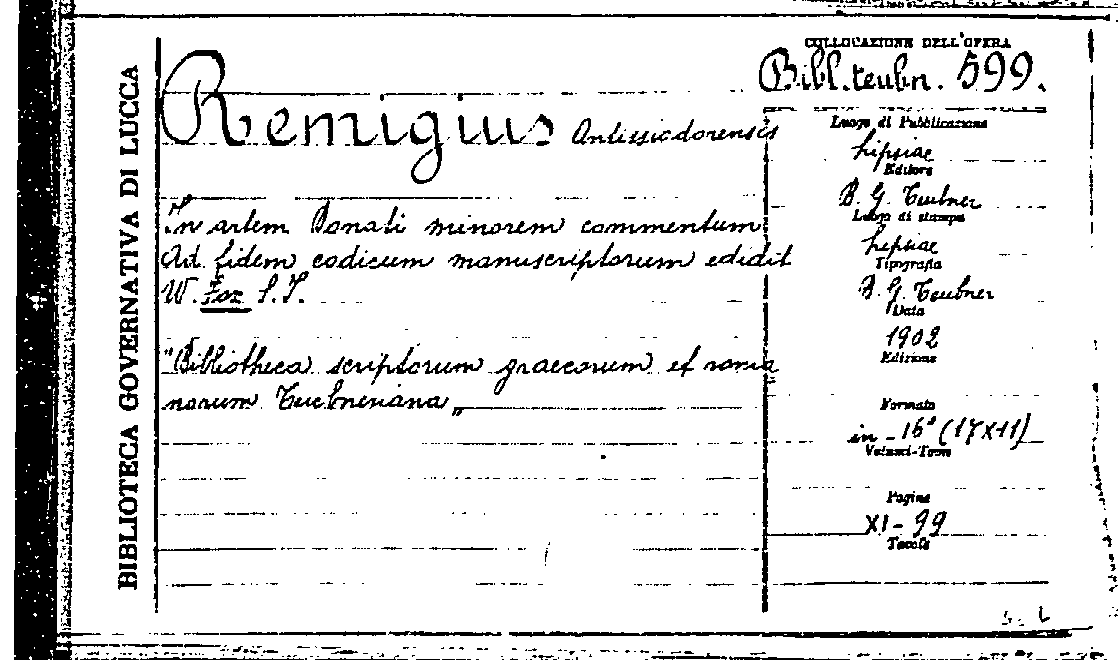 BIBLIOTECA GOVERNATIVA DI LUCCA
COLLOCAZIONE DELL'OPERA
Bibl. teubn. 599.
Remigius Antissiodorensis
In artem Donati minorem commentum
Ad fidem codicum manuscriptorum edidit
W. Fox S.I.
"Bibliotheca scriptorum graecorum et roma
norum Teubneriana„
Luogo di Pubblicazione
Lipsiae
Editore
B. G. Teubner
Luogo di stampa
Lipsiae
Tipografia
B. G. Teubner
Data
1902
Edizione
Formato
in-16° (17x11)
Volumi-Tomi
Pagine
XI-99
Tavole